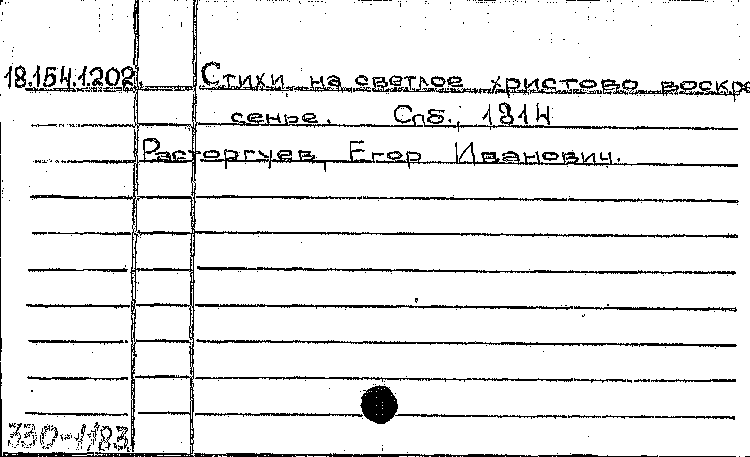 18.154.1.202. Стихи на светлое христово воскре
сенье. Спб., 1814
Расторгуев, Егор Иванович.
330-1183